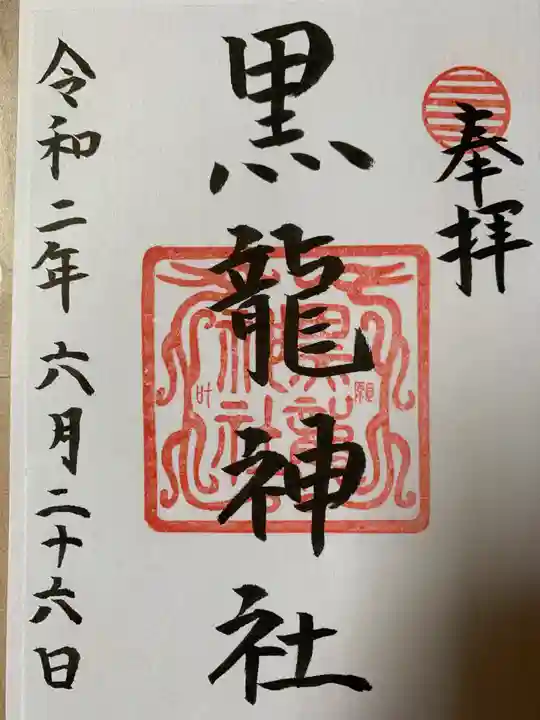 奉拝
黒龍神社
願
叶
令和二年六月二十六日